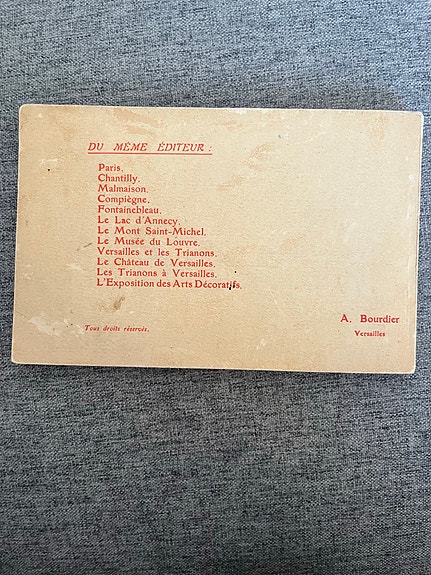 DU MÊME ÉDITEUR :
Paris.
Chantilly.
Malmaison.
Compiègne.
Fontainebleau.
Le Lac d'Annecy.
Le Mont Saint-Michel.
Le Musée du Louvre.
Versailles et les Trianons.
Le Château de Versailles.
Les Trianons à Versailles.
L'Exposition des Arts Décoratifs.
A. Bourdier
Versailles
Tous droits réservés.